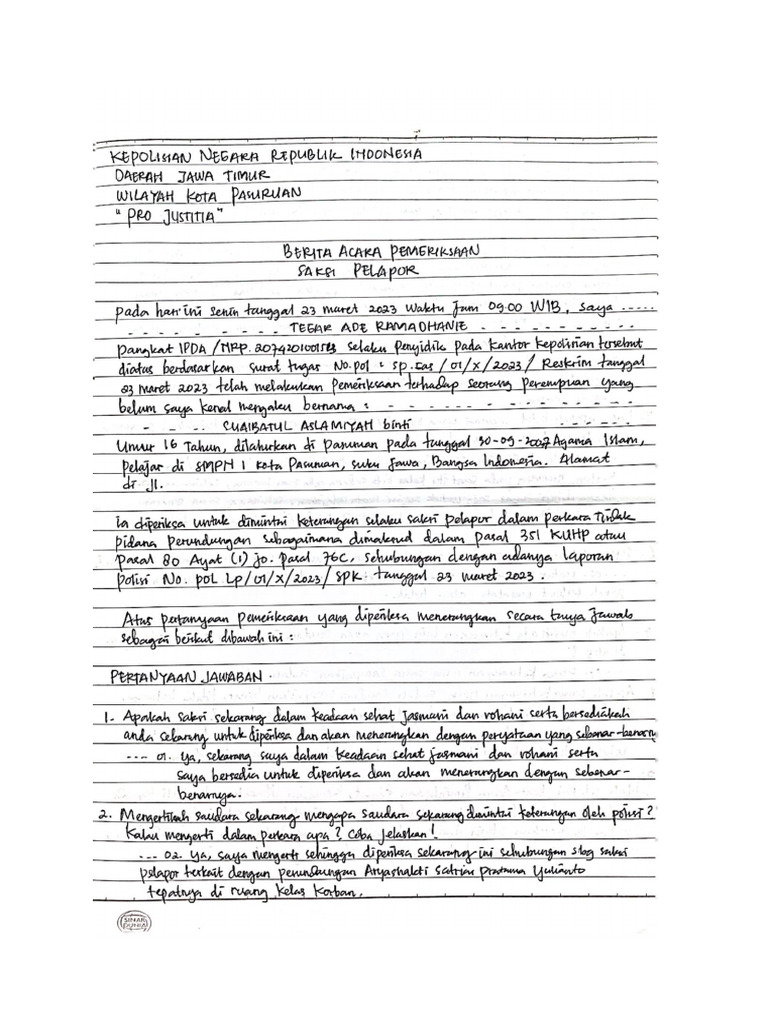 KEPOLISIAN NEGARA REPUBLIK INDONESIA
DAERAH JAWA TIMUR
WILAYAH KOTA PASURUAN
"PRO JUSTITIA"
BERITA ACARA PEMERIKSAAN
SAKSI PELAPOR
Pada hari ini senin tanggal 23 maret 2023 Waktu Jam 09.00 WIB, saya .....
- - - - - - - - - TEGAR ADE RAMADHANIE - - - - - - - - -
Pangkat IPDA / NRP. selaku Penyidik pada Kantor Kepolisian tersebut
diatas berdasarkan surat tugas No.pol : Sp.Gas / 01 / X / 2023 / Reskrim tanggal
23 Maret 2023 telah melakukan Pemeriksaan terhadap seorang Perempuan yang
belum saya kenal mengaku bernama : - - - - - - - - - - - -
- - - - - CUAIBATUL ASLAMIYAH binti - - - - - -
Umur 16 Tahun, dilahirkan di Pasuruan pada tanggal 30-09-2007 Agama Islam,
Pelajar di SMPN 1 Kota Pasuruan, suku Jawa, Bangsa Indonesia. Alamat
di Jl.
Ia diperiksa untuk dimintai keterangan selaku saksi pelapor dalam perkara Tindak
pidana perundungan sebagaimana dimaksud dalam pasal 351 KUHP atau
Pasal 80 Ayat (1) jo. pasal 76C, sehubungan dengan adanya laporan
polisi No. pol Lp / 01 / X / 2023 / SPK tanggal 23 maret 2023.
Atas pertanyaan pemeriksaan yang diperiksa menerangkan secara tanya Jawab
sebagai berikut dibawah ini :
PERTANYAAN JAWABAN
1. Apakah saksi sekarang dalam keadaan sehat Jasmani dan rohani serta bersediakah
anda sekarang untuk diperiksa dan akan menerangkan dengan peryataan yang sebenar-benarny
---- 01. Ya, sekarang saya dalam keadaan sehat Jasmani dan rohani serta
saya bersedia untuk diperiksa dan akan menerangkan dengan sebenar-
benarnya.
2. Mengertikah saudara sekarang mengapa saudara sekarang dimintai keterangan oleh polisi?
Kalau mengerti dalam perkara apa? Coba Jelaskan!
---- 02. Ya, saya mengerti sehingga diperiksa sekarang ini sehubungan sbg saksi
pelapor terkait dengan perundungan Aryashakti Satria Pratama Yulianto
tepatnya di ruang kelas Korban.
SINAR
DUNIA